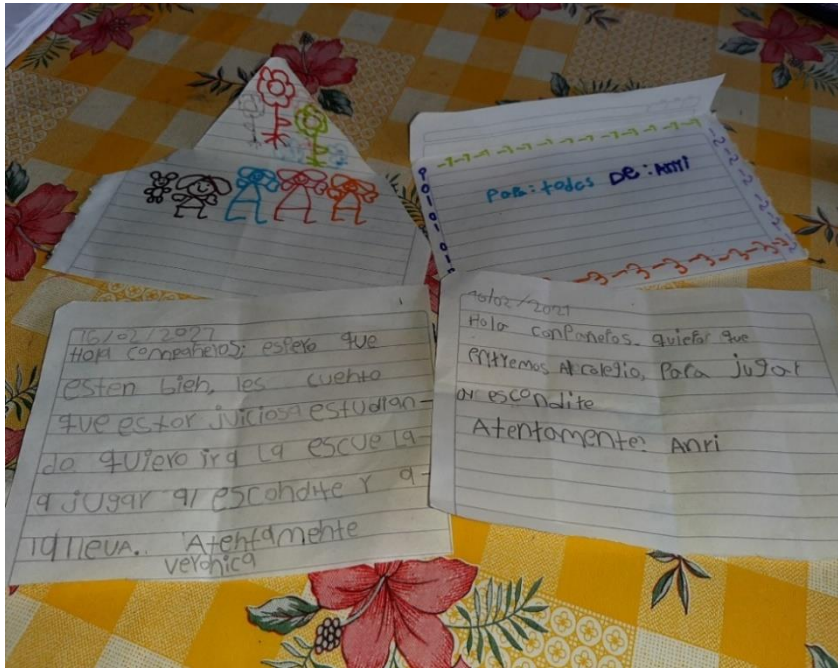 Para: todos De: Anri
16/02/2021
Hola compañeros; espero que
esten bien, les cuento
que estoy juiciosa estudian-
do quiero ir a la escuela
a jugar al escondite y a
la lleva. Atentamente
veronica
16/02/2021
Hola conpaneros. quiero que
entremos Al colegio, Para jugar
al escondite
Atentamente: Anri